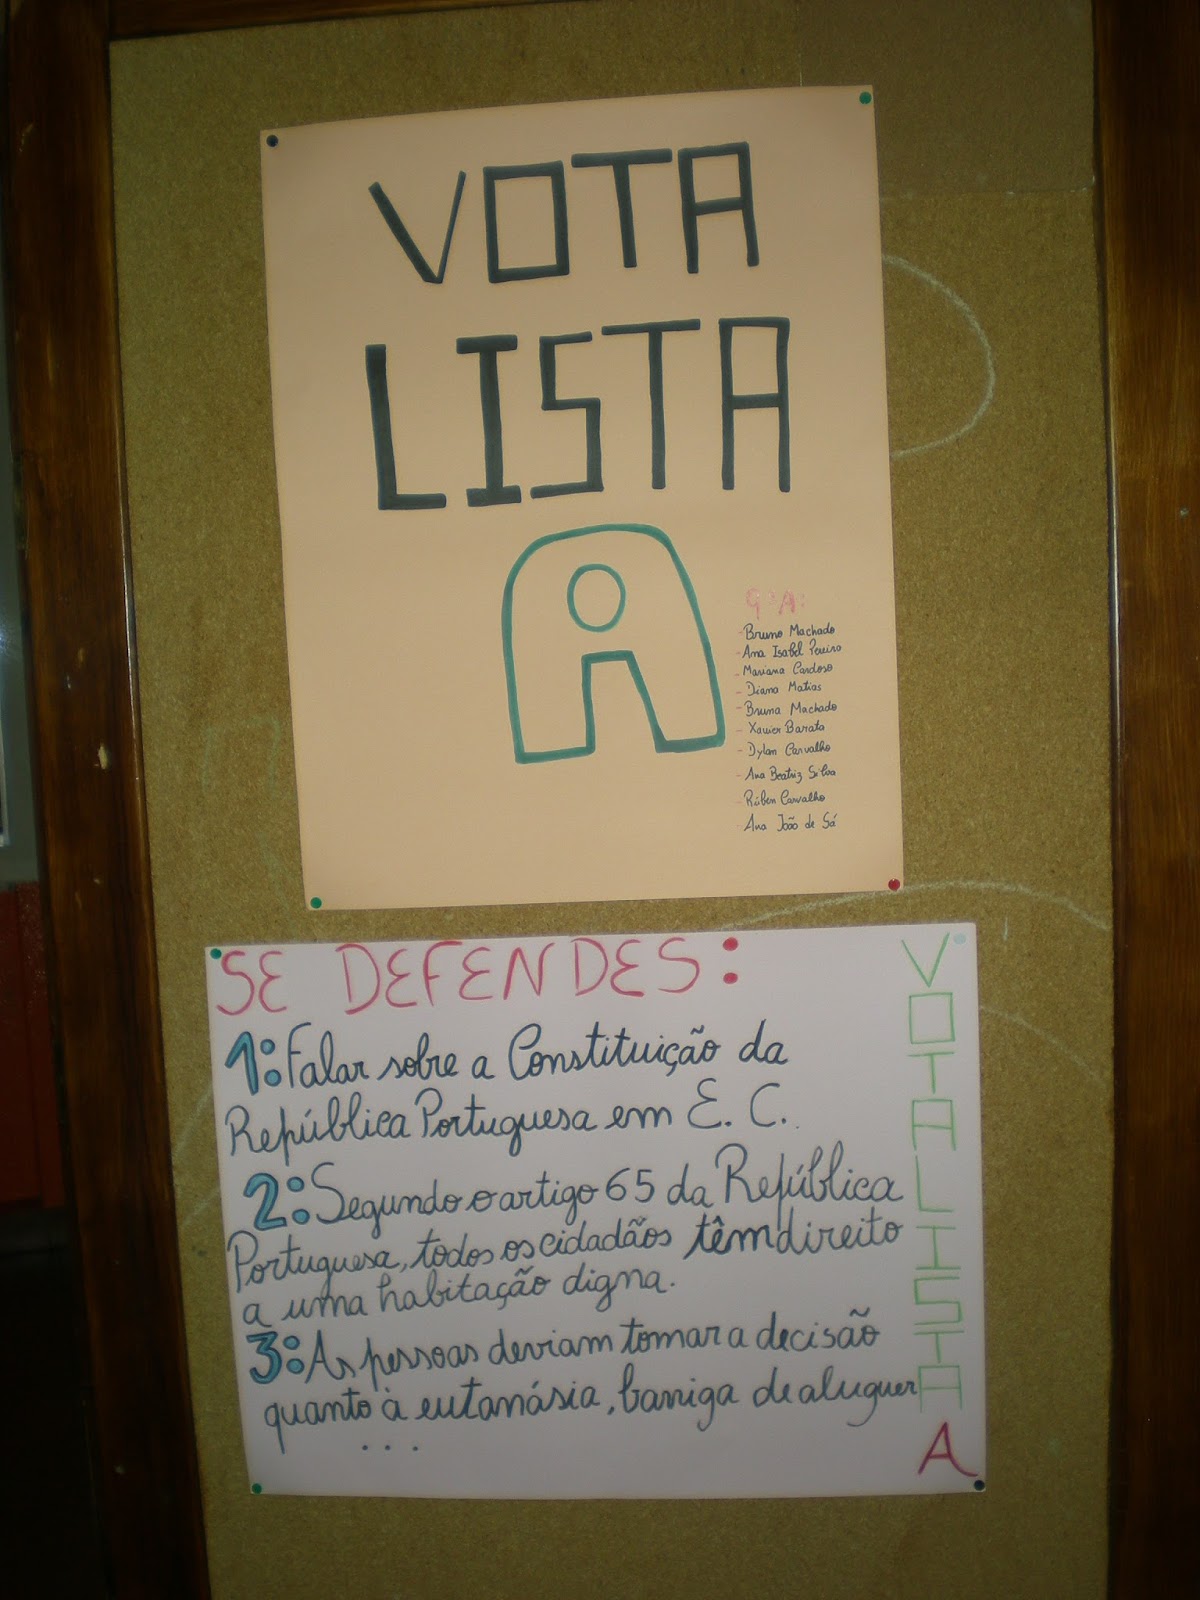 VOTA
LISTA
A
9ºA:
- Bruno Machado
- Ana Isabel Pereira
- Mariana Cardoso
- Diana Matias
- Bruna Machado
- Xavier Barata
- Dylan Carvalho
- Ana Beatriz Silva
- Rúben Carvalho
- Ana João de Sá
SE DEFENDES:
1: Falar sobre a Constituição da
República Portuguesa em E. C.
2: Segundo o artigo 65 da República
Portuguesa, todos os cidadãos têm direito
a uma habitação digna.
3: As pessoas deviam tomar a decisão
quanto à eutanásia, barriga de aluguer
...
VOTA LISTA A